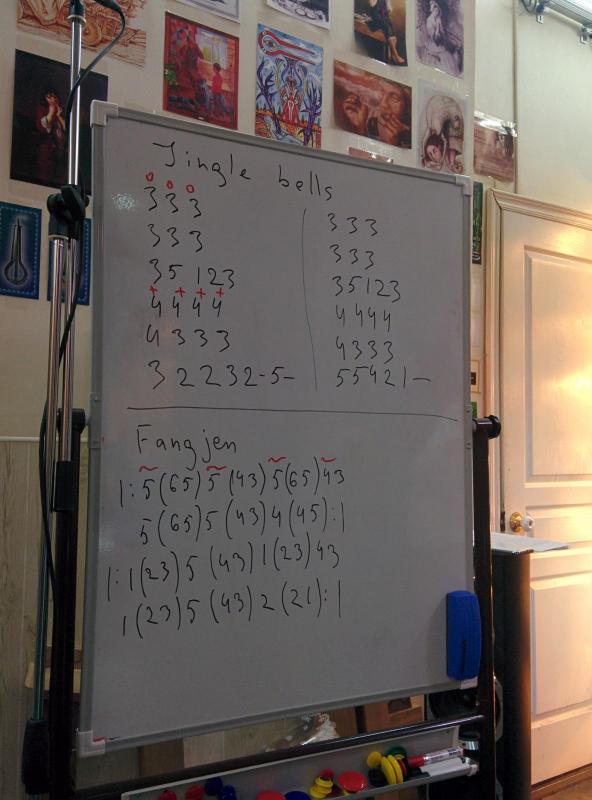 Jingle bells
o o o
3 3 3
3 3 3
3 5 1 2 3
+ + + +
4 4 4 4
4 3 3 3
3 2 2 3 2 - 5 -
3 3 3
3 3 3
3 5 1 2 3
4 4 4 4
4 3 3 3
5 5 4 2 1 —
Fangjen
~ ~ ~ ~
|: 5 (65) 5 (43) 5 (65) 43
5 (65) 5 (43) 4 (45) :|
|: 1 (23) 5 (43) 1 (23) 43
1 (23) 5 (43) 2 (21) :|